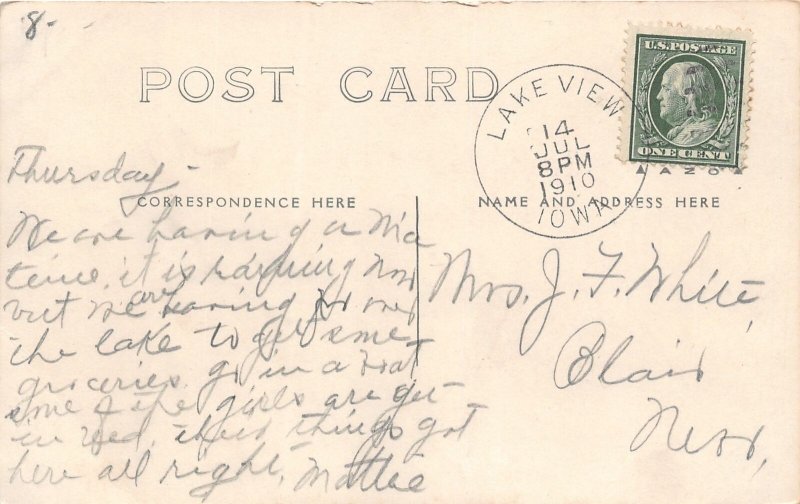 8-
POST CARD
U.S. POSTAGE
ONE CENT
LAKE VIEW
14
JUL
8PM
1910
IOWA
Thursday-
CORRESPONDENCE HERE
NAME AND ADDRESS HERE
We are having a nice
time. it is raining now
but we are having to over
the lake to get some
groceries. go in a boat
some of the girls are get-
in things got
here all right. Mattie
Mrs. J. F. White,
Blair
Nebr.